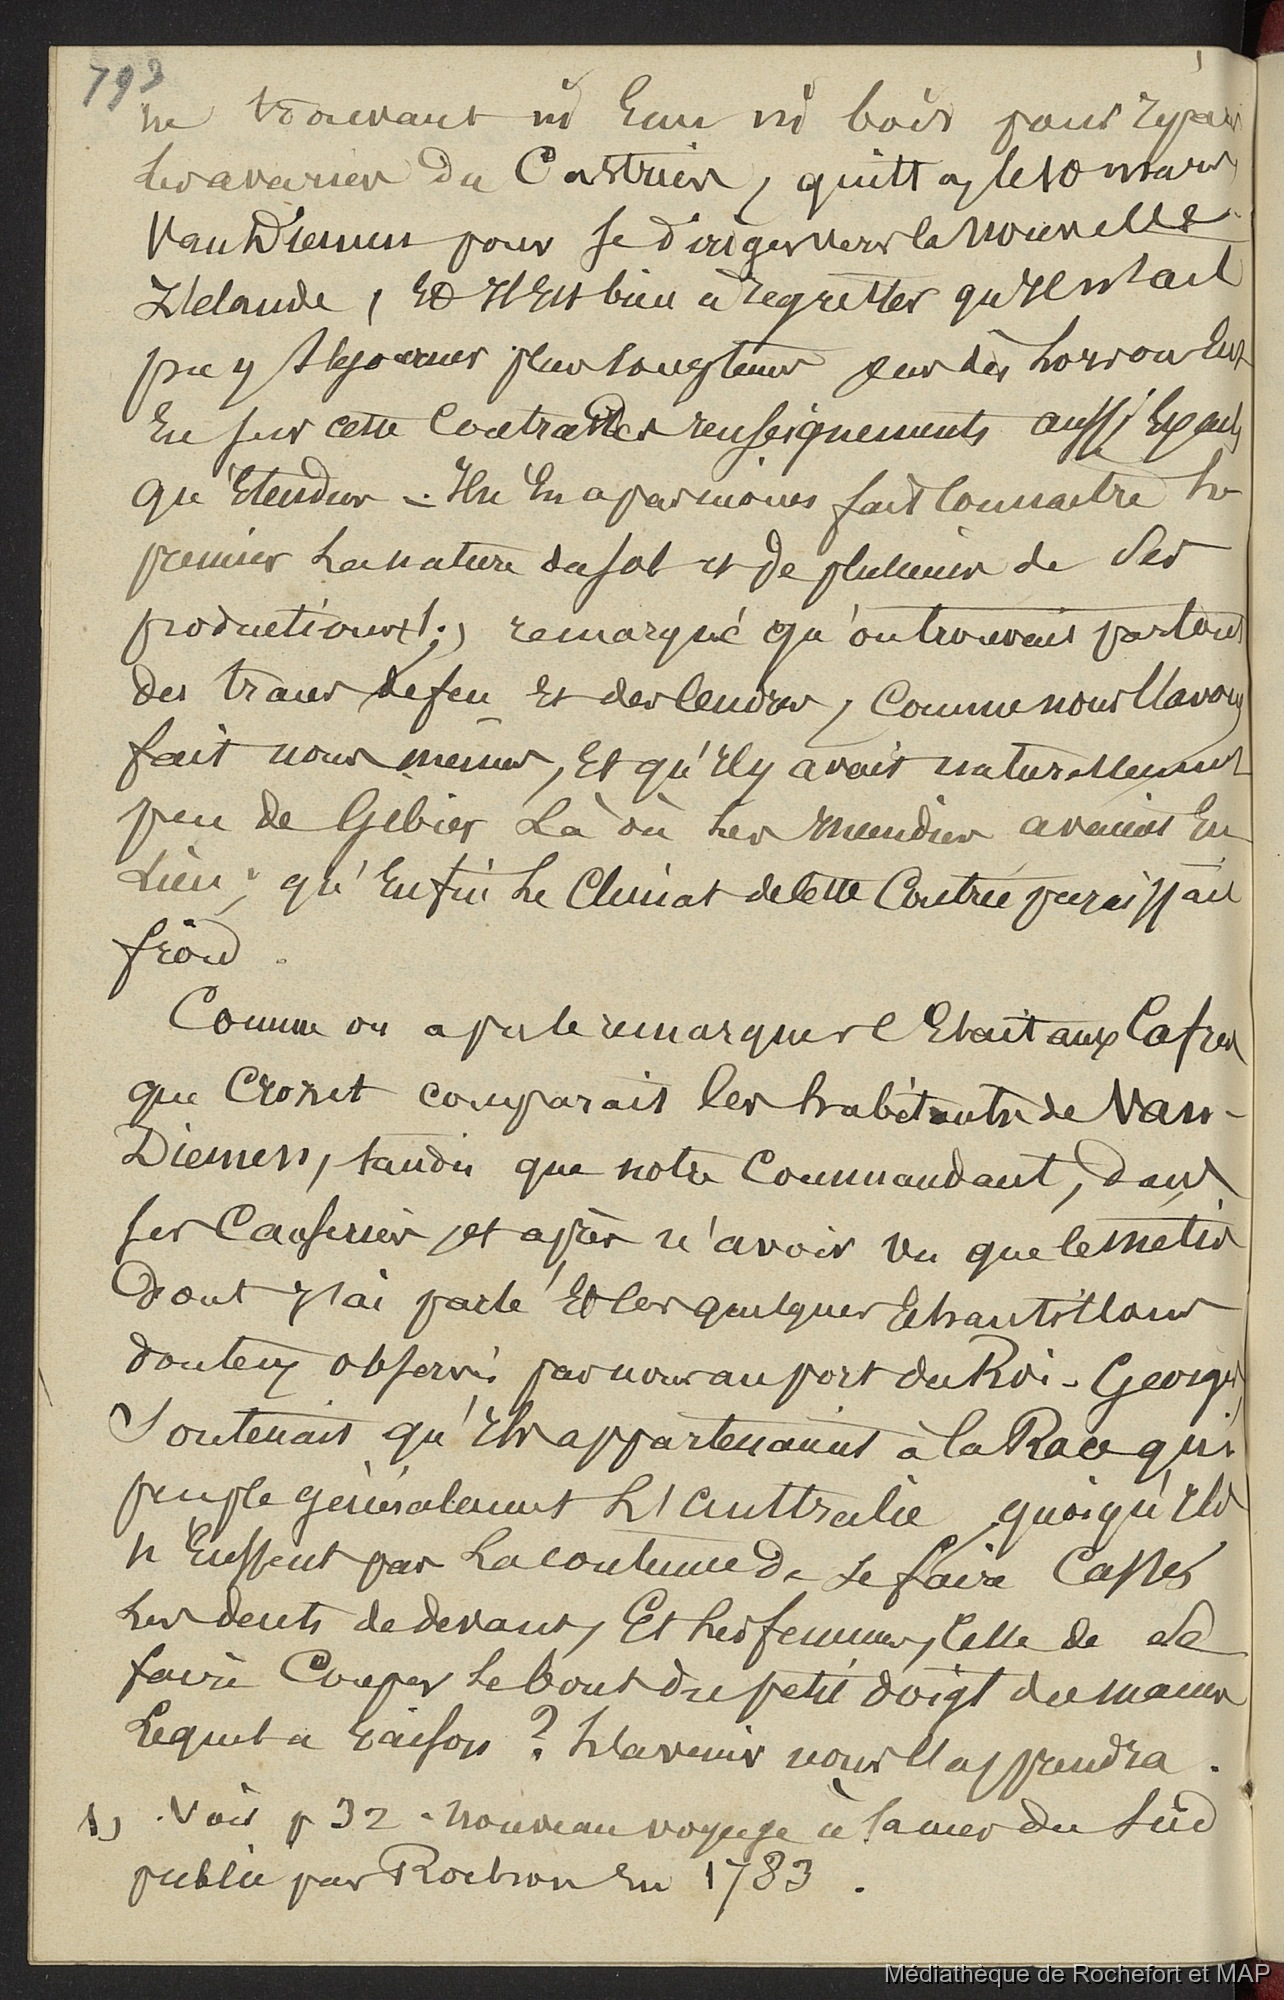 793
ne trouvant ni Eau ni bois pour répar
les avaries du Castries, quitta, le 10 mars
Van Diemen pour se diriger vers la nouvelle
Zélande, Et Il Est bien à regretter qu'Il n'ait
pu y séjourner plus longtems car dès lors on Eut
Eu sur cette Contrée des renseignements aussi Exacts
qu'étendus - Il n'En a pas moins fait Connaître le
premier La nature du sol et de plusieurs de Ses
productions (1), remarqué qu'on trouvait partout
des traces de feu Et des Cendres, Comme nous l'avons
fait nous mêmes, Et qu'Il y avait naturellement
peu de Gibier Là où les Incendies avaient Eu
Lieu ; qu'Enfin Le Climat de Cette Contrée paraissait
froid .
Comme on a pu le remarquer c'Etait aux Cafres
que Crozet comparait les habitants de Van-
Diemen, tandis que notre Commandant, dans
ses Causeries, et après n'avoir vu que le métis
Dont J'ai parlé Et les quelques Echantillons
douteux observés par nous au port du Roi-Georges,
Soutenait qu'Ils appartenaient à la Race qui
peuple généralement L'Australie quoiqu'Ils
n'Eussent pas La coutume de se faire Casser
Les dents de devant, Et Les femmes, Celle de se
faire Couper Le bout du petit doigt des mains
Lequel a raison ? L'avenir nous l'apprendra .
1) . Voir p 32 - Nouveau voyage à la mer du Sud
publié par Rochon En 1783 .
Médiathèque de Rochefort et MAP